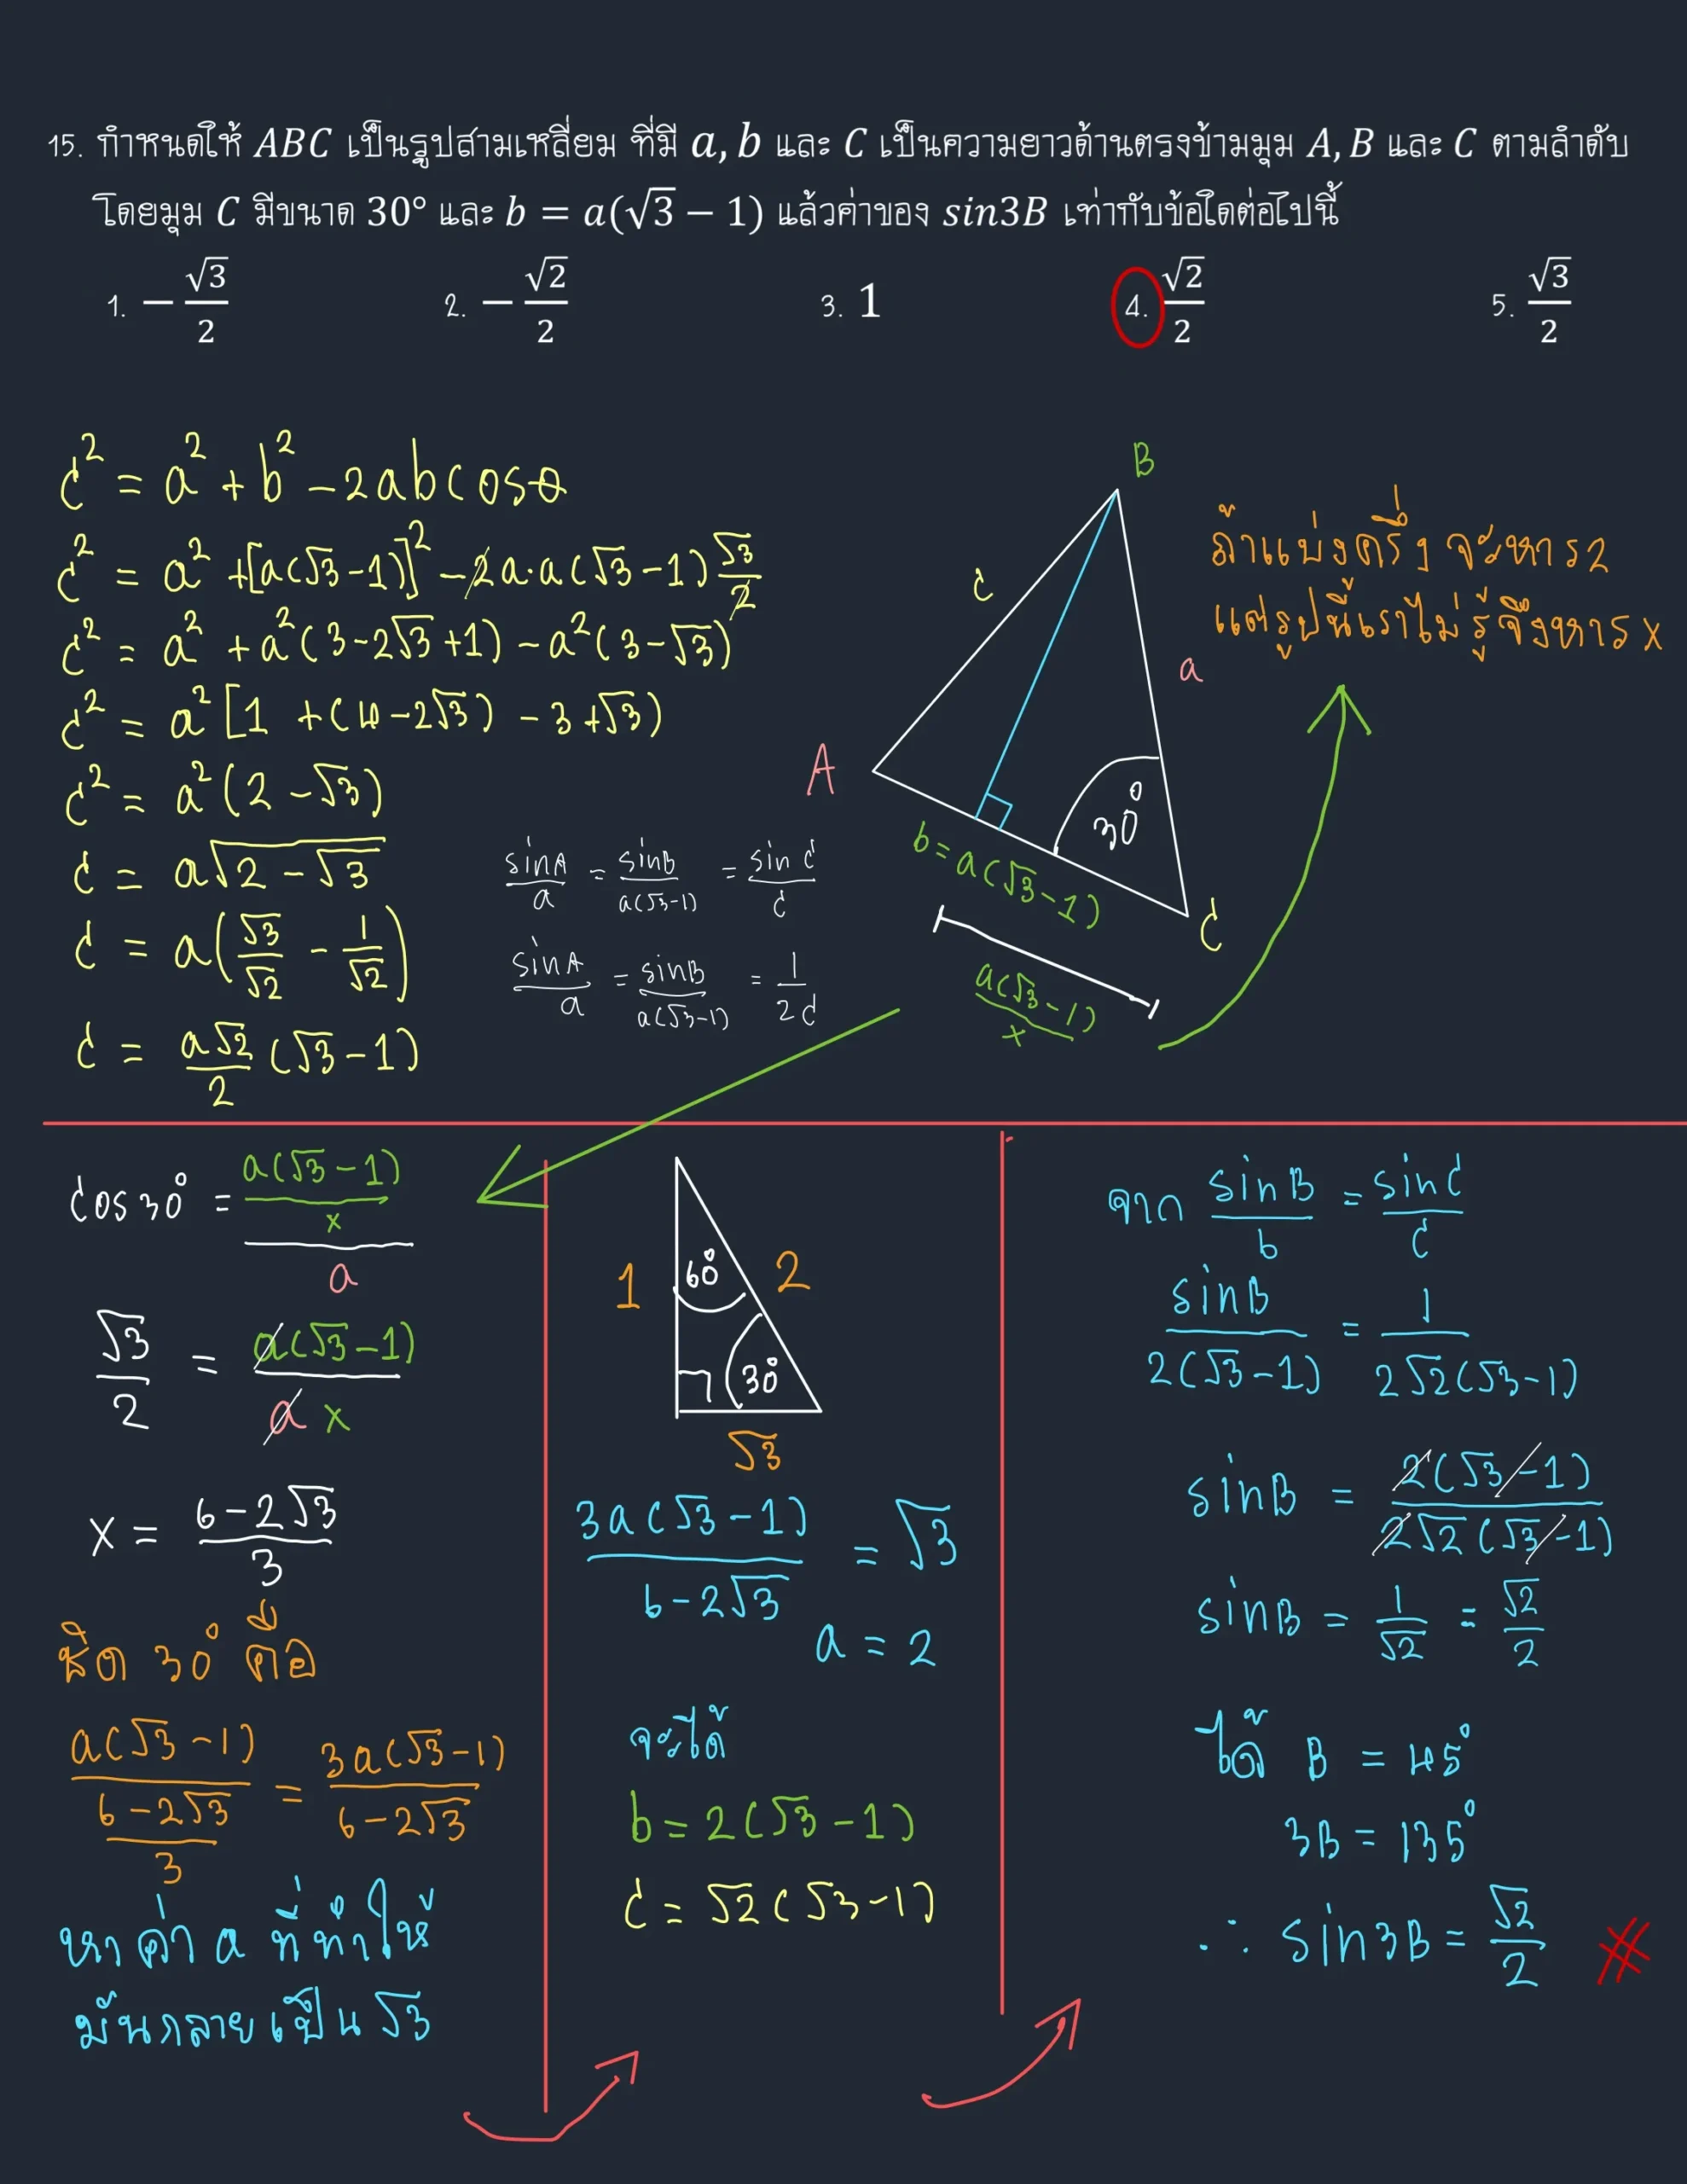 15. กำหนดให้ ABC เป็นรูปสามเหลี่ยม ที่มี a, b และ C เป็นความยาวด้านตรงข้ามมุม A, B และ C ตามลำดับ
โดยมุม C มีขนาด 30° และ b = a(√3 − 1) แล้วค่าของ sin3B เท่ากับข้อใดต่อไปนี้
1. −√3/2 2. −√2/2 3. 1 4. √2/2 5. √3/2
c² = a² + b² − 2ab cosθ
c² = a² + [a(√3−1)]² − 2a·a(√3−1) √3/2
c² = a² + a²(3−2√3+1) − a²(3−√3)
c² = a²[1 + (4−2√3) − 3+√3)
c² = a²(2−√3)
c = a√2−√3
c = a(√3/√2 − 1/√2)
c = a√2/2 (√3−1)
sinA/a = sinB/a(√3−1) = sin c/c
sinA/a = sinB/a(√3−1) = 1/2c
B
c
a
A
30°
b = a(√3−1)
C
a(√3−1)/x
ถ้าแบ่งครึ่ง จะหาร2
แต่รูปนี้เราไม่รู้จึงหาร x
cos30° = a(√3−1)/x / a
√3/2 = a(√3−1)/a x
x = 6−2√3/3
ชิด 30° คือ
a(√3−1)/6−2√3/3 = 3a(√3−1)/6−2√3
หาค่า a ที่ทำให้
มันกลายเป็น √3
1 60° 2
30°
√3
3a(√3−1)/6−2√3 = √3
a = 2
จะได้
b = 2(√3−1)
c = √2(√3−1)
จาก sinB/b = sinC/c
sinB/2(√3−1) = 1/2√2(√3−1)
sinB = 2(√3−1)/2√2(√3−1)
sinB = 1/√2 = √2/2
ได้ B = 45°
3B = 135°
∴ sin3B = √2/2 #